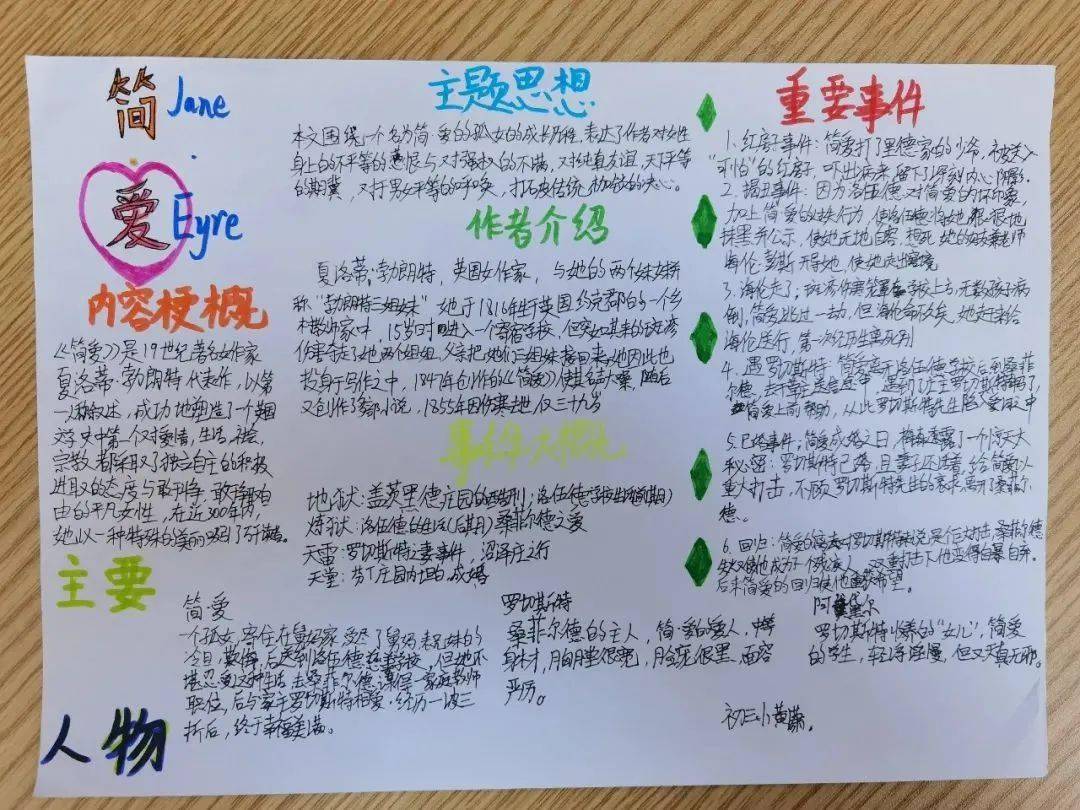 简·爱
Jane
Eyre
内容梗概
《简爱》是19世纪著名女作家
夏洛蒂·勃朗特代表作,以第
一人称叙述,成功地塑造了个英国
文学史中第一个对爱情,生活,社会,
宗教都采取了独立自主的积极
进取的态度与敢于斗争,敢于争取自
由的平凡女性,在近300年内,
她以一种特殊的美丽吸引了
主题思想
本文围绕一个名为简·爱的孤女的成长历程,表达了作者对女性
身上的不平等的愤恨与对强权的不满,对纯真友谊,天下平等
的期冀,对于男女平等的呼唤,打破传统枷锁的决心。
作者介绍
夏洛蒂·勃朗特,英国女作家,与她的两个妹妹拼
称“勃朗特三姐妹”她于1816年生于英国约克郡的一个乡
村牧师家中,15岁时进入一个寄宿学校,但突如其来的斑疹
伤寒夺走了她两个姐姐,父亲把她们三姐妹接回来,她因此也
投身于写作之中,1847年创作的《简爱》使其名声大噪,随后
又创作了多部小说,1855年因伤寒去世,仅三十九岁
事件大概况
地狱:盖茨里德庄园的酷刑;洛伍德学校生活(前期)
炼狱:洛伍德的生活(后期)桑菲尔德之爱
天雷:罗切斯特之妻事件,沼泽庄之行
天堂:芬丁庄园内坦白,成婚
重要事件
1、红房子事件:简爱打了里德家的少爷,被送入
“可怕”的红房子,吓出病来,留下了深刻内心阴影。
2、揭丑事件:因为洛伍德对简爱的坏印象,
加上简爱的过失行为,使洛伍德将她狠狠地
抹黑并公示,使她无地自容,想死,她的好友兼老师
海伦·彭斯开导她,使她走出窘境
3、海伦走了:斑疹伤寒笼罩在学校上方,无数孩子病
倒,简爱逃过一劫,但海伦命不久矣,她赶来给
海伦送行,第一次经历生离死别
4、遇罗切斯特:简爱离开洛伍德学校后到桑菲
尔德,去干草庄送信途中,遇到了庄主罗切斯特摔倒了,
简爱上前帮助,从此罗切斯特先生陷入爱河之中
5.已婚事件:简爱成婚之日,梅森透露了一个惊天大
秘密:罗切斯特已婚,且妻子还活着,给简爱以
重大打击,不顾罗切斯特先生的哀求,离开了桑菲尔
德。
6.回归:简爱的离去对罗切斯特来说是巨大打击,桑菲尔德
失火又使他成为了个残疾人,双重打击下他变得自暴自弃。
后来简爱的回归使他重获希望。
主要
人物
简·爱
一个孤女,寄住在舅妈家,受尽了舅妈,表兄妹的
冷目,欺侮,后送到洛伍德慈善学校,但她不
堪忍受这种生活,去桑菲尔德谋得一家庭教师
职位,后与宅主罗切斯特相爱,经历一波三
折后,终于幸福美满。
罗切斯特
桑菲尔德的主人,简·爱的爱人,中等
身材,胸膛很宽,脸死很黑,面容
严厉。
阿黛尔
罗切斯特收养的“女儿”,简爱
的学生,轻浮怪慢,但又天真无邪。